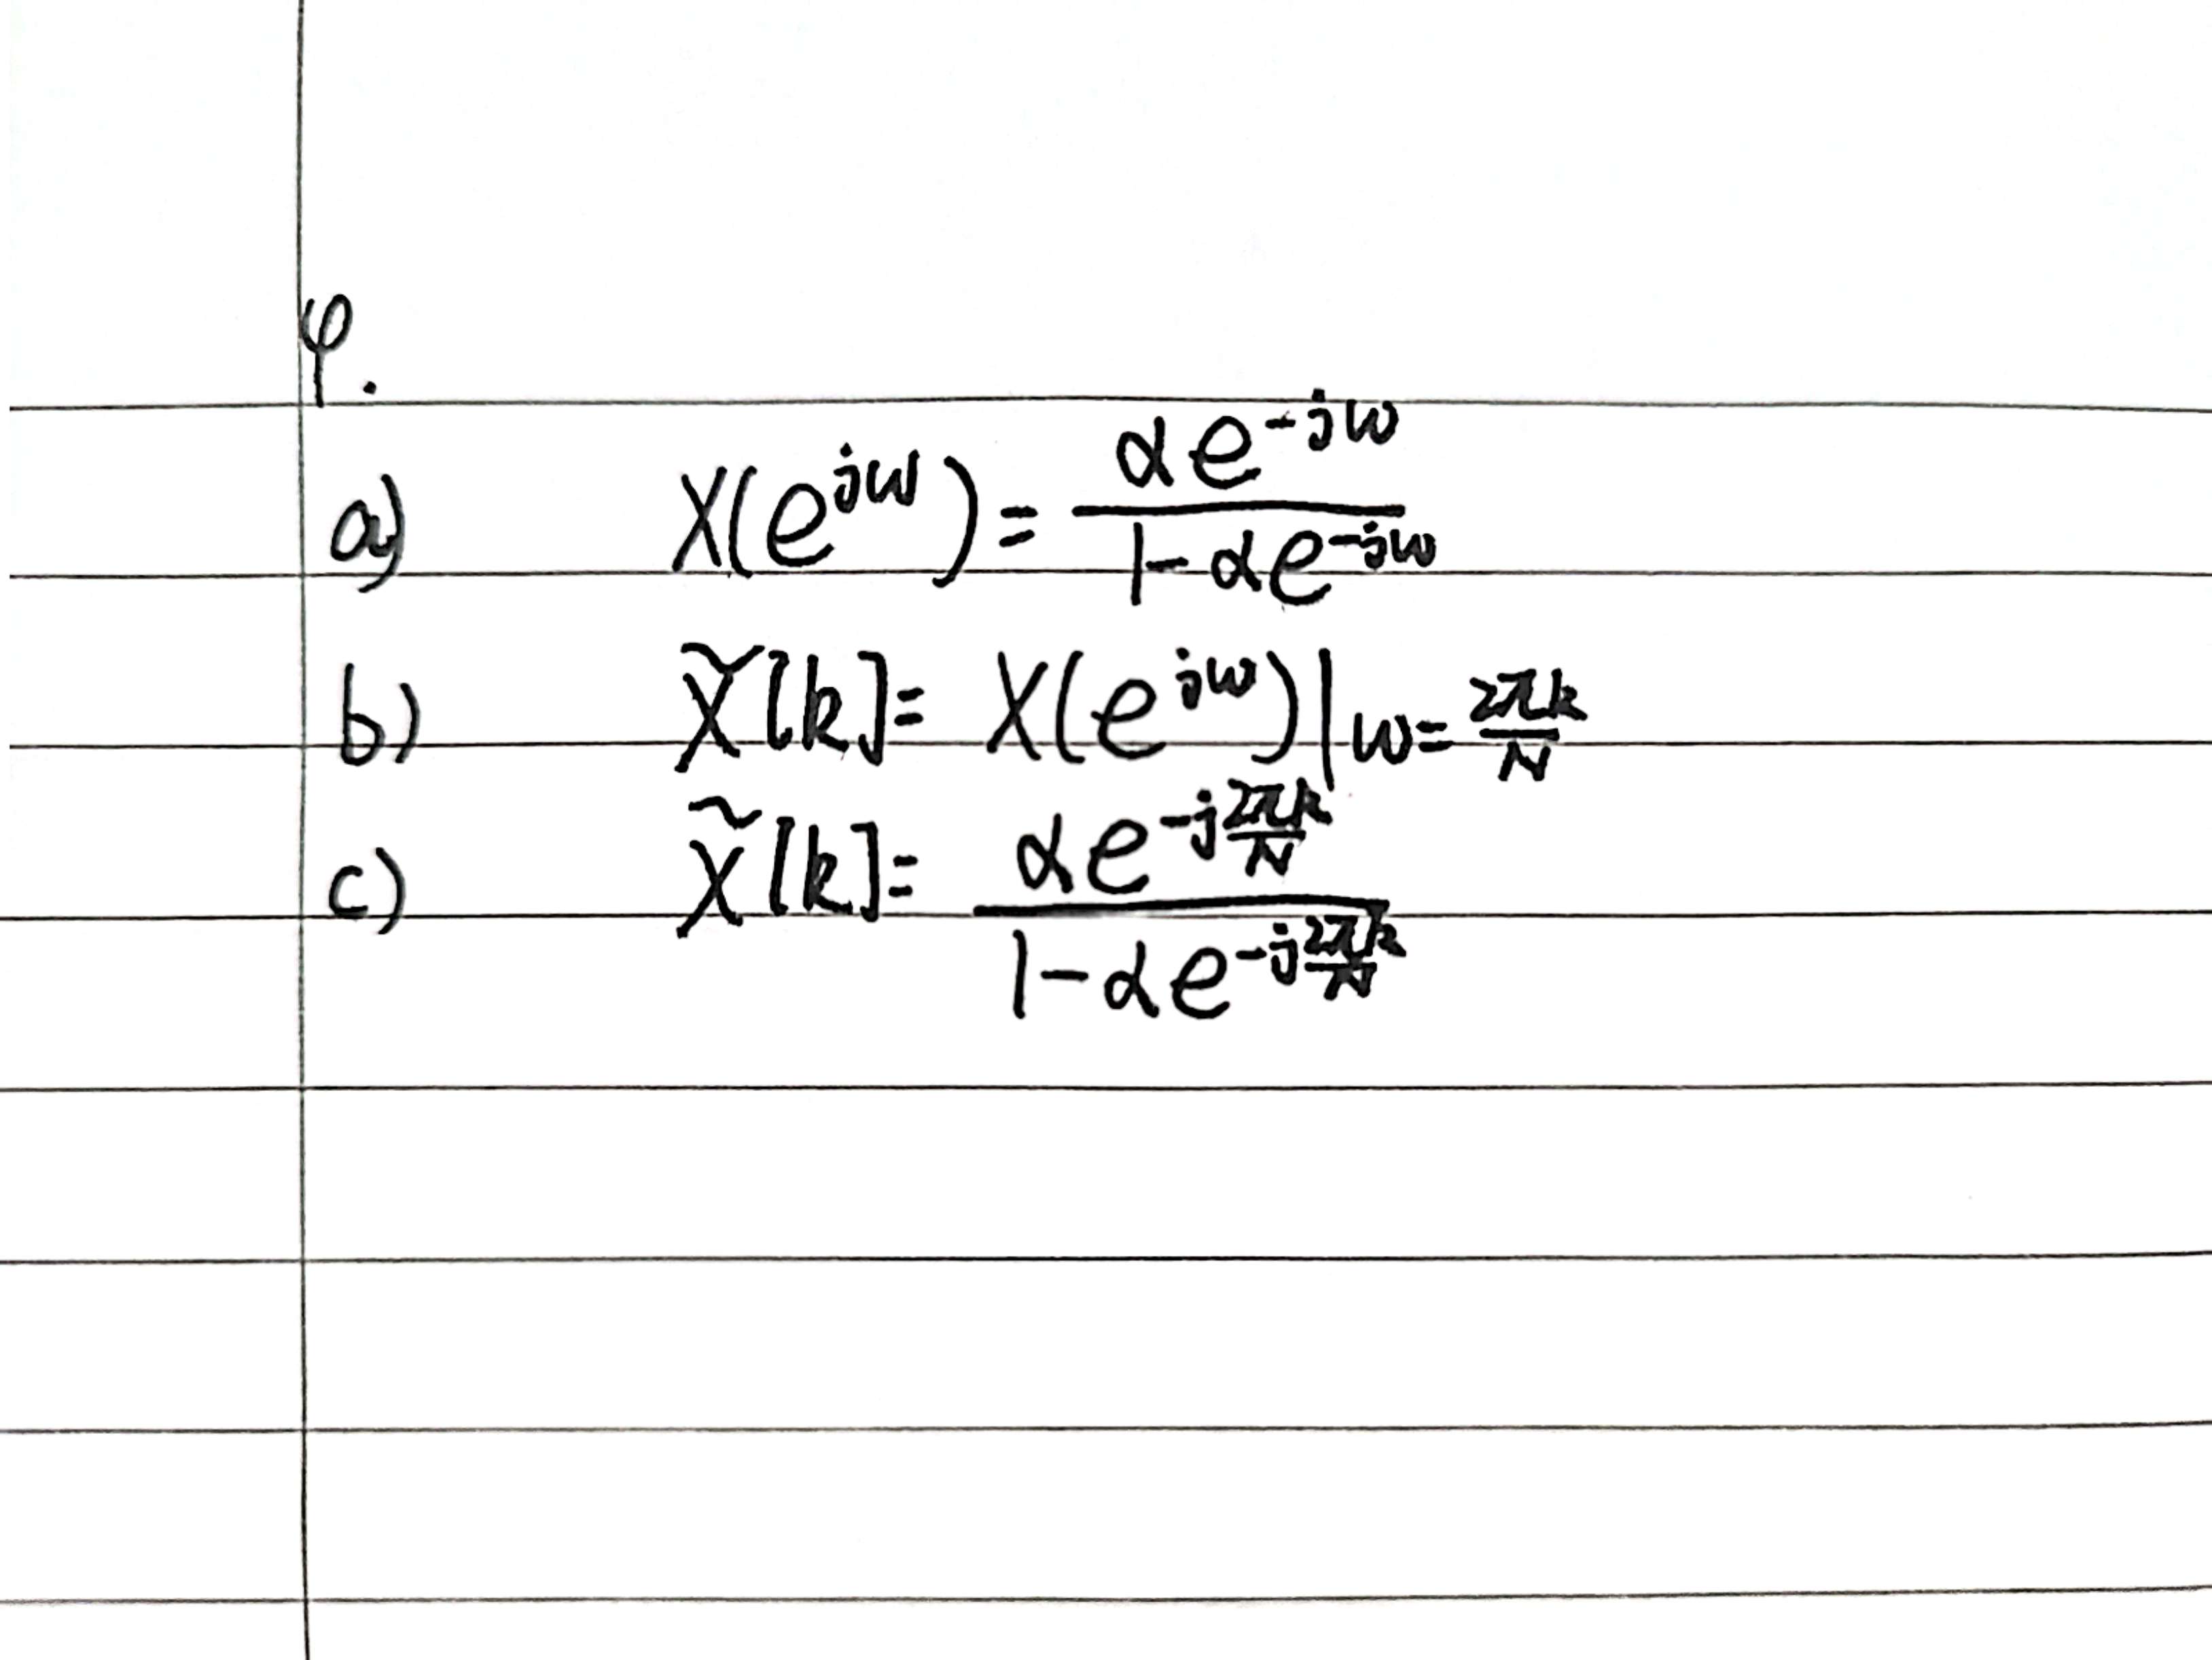 φ.
a) X(e^{jω}) = \frac{αe^{-jω}}{1-αe^{-jω}}
b) X̃[k] = X(e^{jω})|_{ω=\frac{2πk}{N}}
c) X̃[k] = \frac{αe^{-j\frac{2πk}{N}}}{1-αe^{-j\frac{2πk}{N}}}